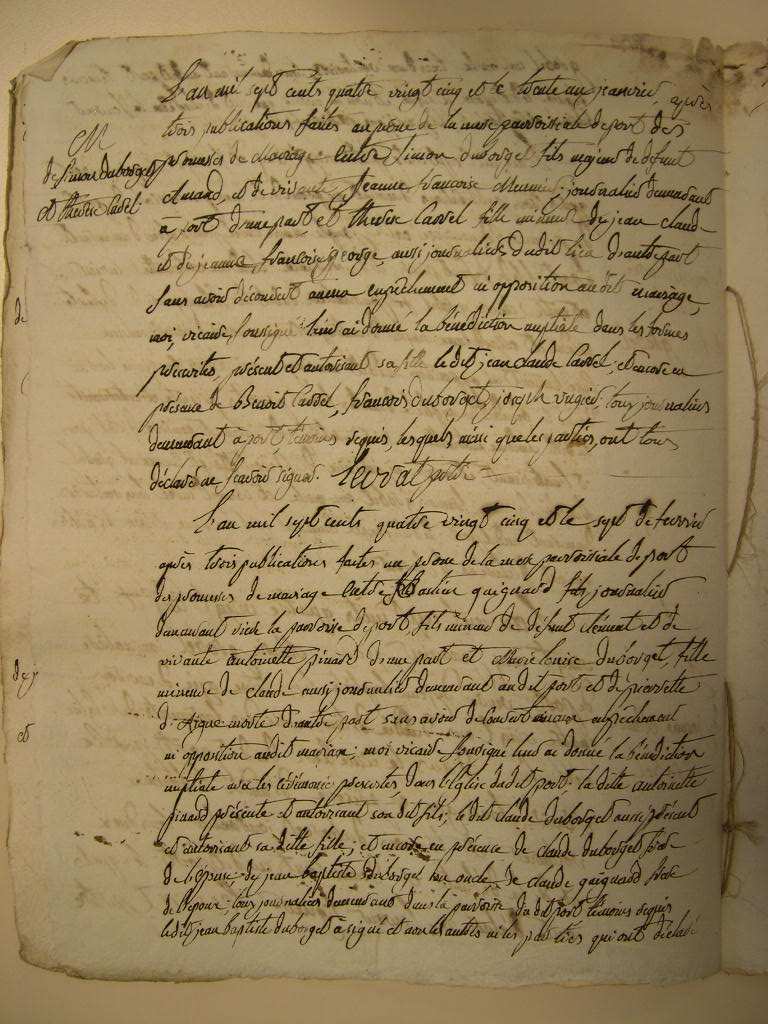 L'an mil sept cents quatre vingt cinq et le trente un janvier, après
trois publications faites au prone de la messe parroissiale de port des
M
de Simon duborget
et therese Cassel
promesses de Mariage entre Simon duborget fils majeur de défunt
et de vivante Jeanne francoise Meunier, journalier demeurant
à port d'une part, et therese Cassel fille mineure de jean claude
et de jeanne francoise george, aussi journaliers dudit lieu d'autre part
sans avoir découvert aucun empêchement ni opposition audit mariage,
moi, vicaire, soussigné leur ai donné la bénédiction nuptiale dans les formes
prescrites, présent et autorisant sa fille le dit jean claude Cassel, et encore en
présence de Benoit Cassel, francois duborget, joseph, tous journaliers
demeurant à port, témoins requis, lesquels ainsi que les parties, ont tous
déclaré ne scavoir signer. Levrat
L'an mil sept cents quatre vingt cinq et le sept de fevrier
après trois publications faites au prone de la messe parroissiale de port
des promesses de mariage entre guignard fils journalier
demeurant la parroisse de port fils mineur de defunt clément et de
vivante antoinette pinard d'une part et Marie louise duborget, fille
mineure de claude aussi journalier demeurant audit port et de pierrette
d'Aigue morte d'autre part sans avoir decouvert aucun empêchement
ni opposition audit mariage; moi vicaire soussigné leur ai donné la bénédiction
nuptiale avec les cérémonies prescrites, dans l'Eglise dudit port. la dite antoinette
pinard présente et autorisant son dit fils; le dit claude duborget aussi présent
et autorisant sa ditte fille; et encore en présence de claude duborget frere
de l'épouse; de jean baptiste duborget son oncle, de claude guignard frere
de l'époux tous journaliers demeurant dans la parroisse du dit port témoins requis
le dit jean baptiste duborget à signé et non les autres ni les parties qui ont déclaré
de j
et